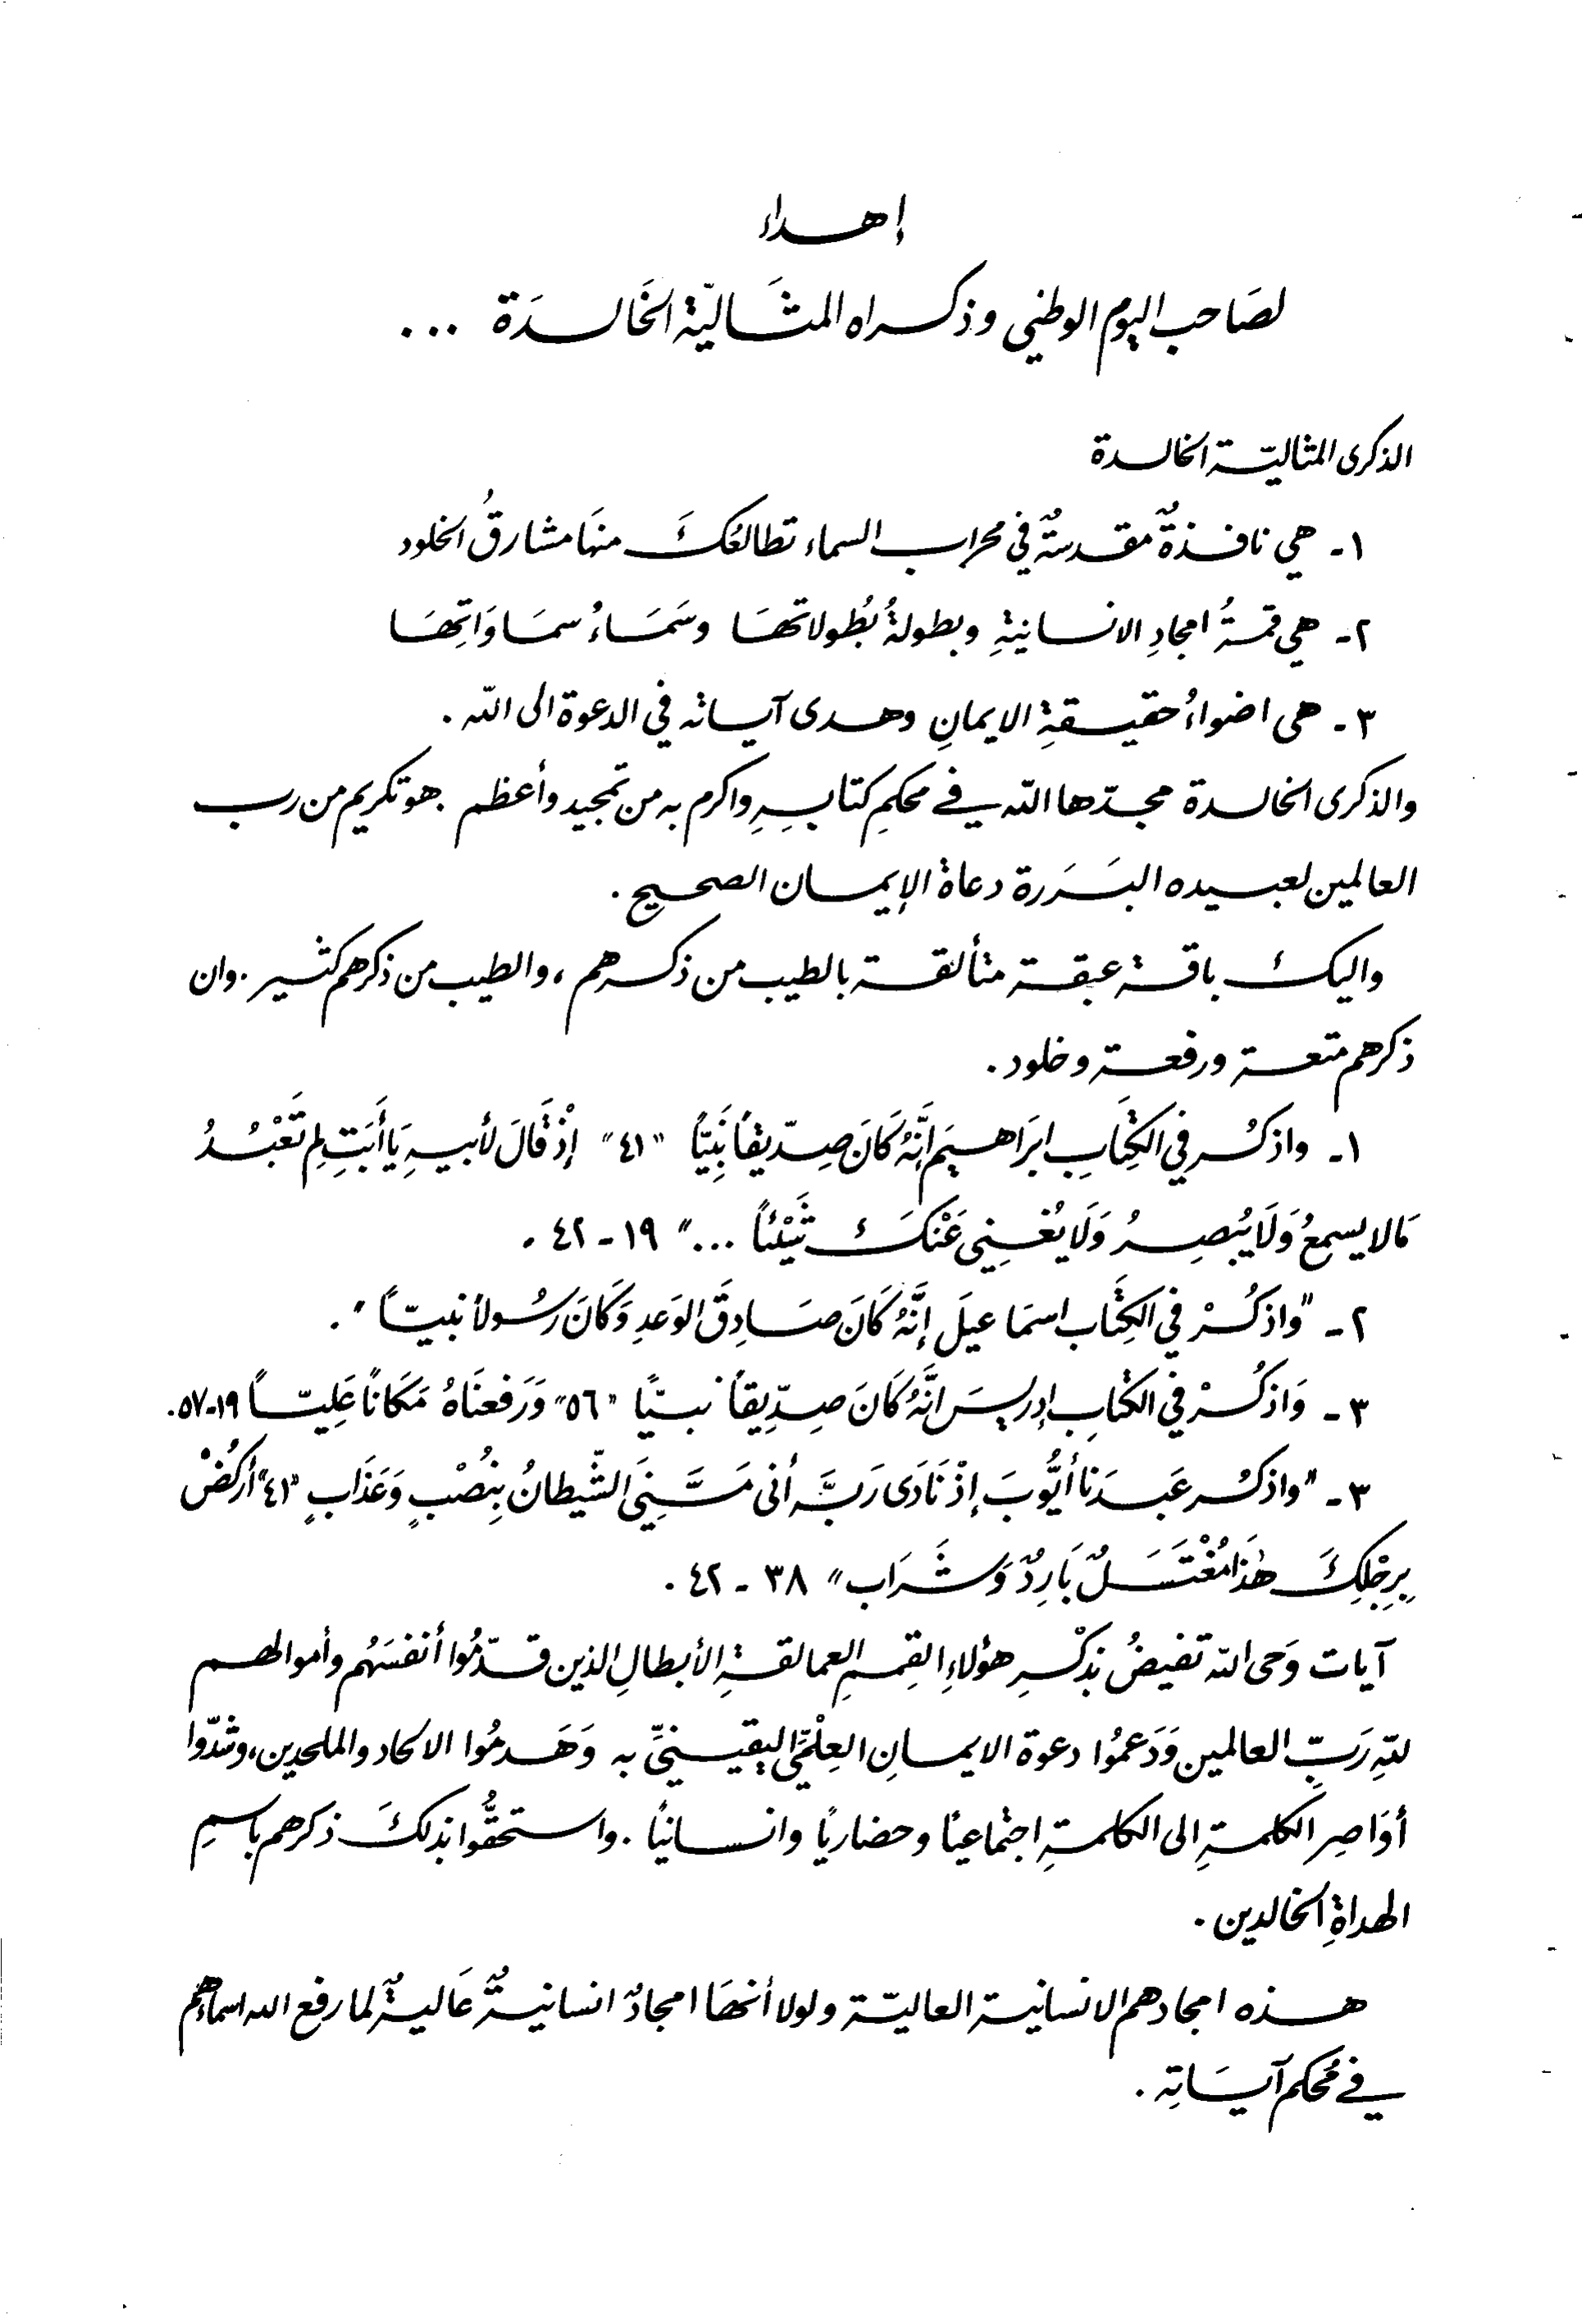 إهداء
لصَاحب اليوم الوطني وذكراه المثَاليّة الخَالدَة ...
الذكرى المثاليّة الخالدة
١- هي نافذةٌ مقدسةٌ في محراب السماء تطالعُكَ منهَا مشارقُ الخلود
٢- هي قمةُ امجادِ الانسانيةِ وبطولةُ بُطُولاتهَا وسَمَاءُ سمَاوَاتِهَا
٣- هي اضواءُ حقيقةِ الايمانِ وهدى آياته في الدعوة الى الله .
والذكرى الخالدة مجدّها الله في محكمِ كتابِهِ واكرم به من تمجيد وأعظم . هو تكريم من رب
العالمين لعبيده البَرَرة دعاة الإيمان الصحيح .
واليك باقة عبقة متألقة بالطيب من ذكرهم ، والطيب من ذكرهم كثير . وان
ذكرهم متعة ورفعة وخلود .
١- واذكُر في الكِتَابِ ابرَاهيمَ إنَّهُ كَانَ صِدّيقاً نَبِيّاً "٤١" إذْ قَالَ لأبيهِ يَا أَبَتِ لِم تَعْبُدُ
مَالا يسمعُ وَلَا يُبْصِرُ وَلَا يُغْنِي عَنْكَ شَيْئاً ..." ١٩ - ٤٢ .
٢- "واذكُرْ في الكِتَاب اسمَاعيلَ إنَّهُ كَانَ صَادِقَ الوَعدِ وَكَانَ رَسُولاً نبيّاً" .
٣- وَاذكُرْ في الكتابِ إدريسَ انَّهُ كَانَ صِدِّيقاً نبيّاً "٥٦" وَرَفعنَاهُ مَكَاناً عَلِيّاً ١٩-٥٧ .
٣- "واذكُر عَبدَنا أيُّوبَ إذْ نَادَى رَبَّه أنى مَسَّنِيَ الشّيطانُ بِنُصْبٍ وَعَذَابٍ "٤١" أركُضْ
بِرِجْلِكَ هٰذَا مُغْتَسَلٌ بَارِدٌ وَشَرَاب" ٣٨ - ٤٢ .
آيات وَحى الله تفيضُ بذكْرِ هؤلاءِ القِممِ العمالقةِ الأبطالِ الذين قدّمُوا أنفسَهُم وأموالهم
للهِ رَبِّ العالمين وَدَعمُوا دعوة الايمانِ العِلْمَّى اليقينىَّ به وَهَدمُوا الالحاد والملحدين ، وشدّوا
أوَاصِر الكلمةِ الى الكلمةِ اجتماعيًا وحضاريًا وانسانيًا . واستحقُّوا بذلكَ ذكرهم باسمِ
الهداةِ الخالدين .
هذه امجادهم الانسانية العاليّة ولولا أنهَا امجادٌ انسانيةٌ عَاليةٌ لما رفع الله اسماءهم
في مُحكم آيَاتِه .